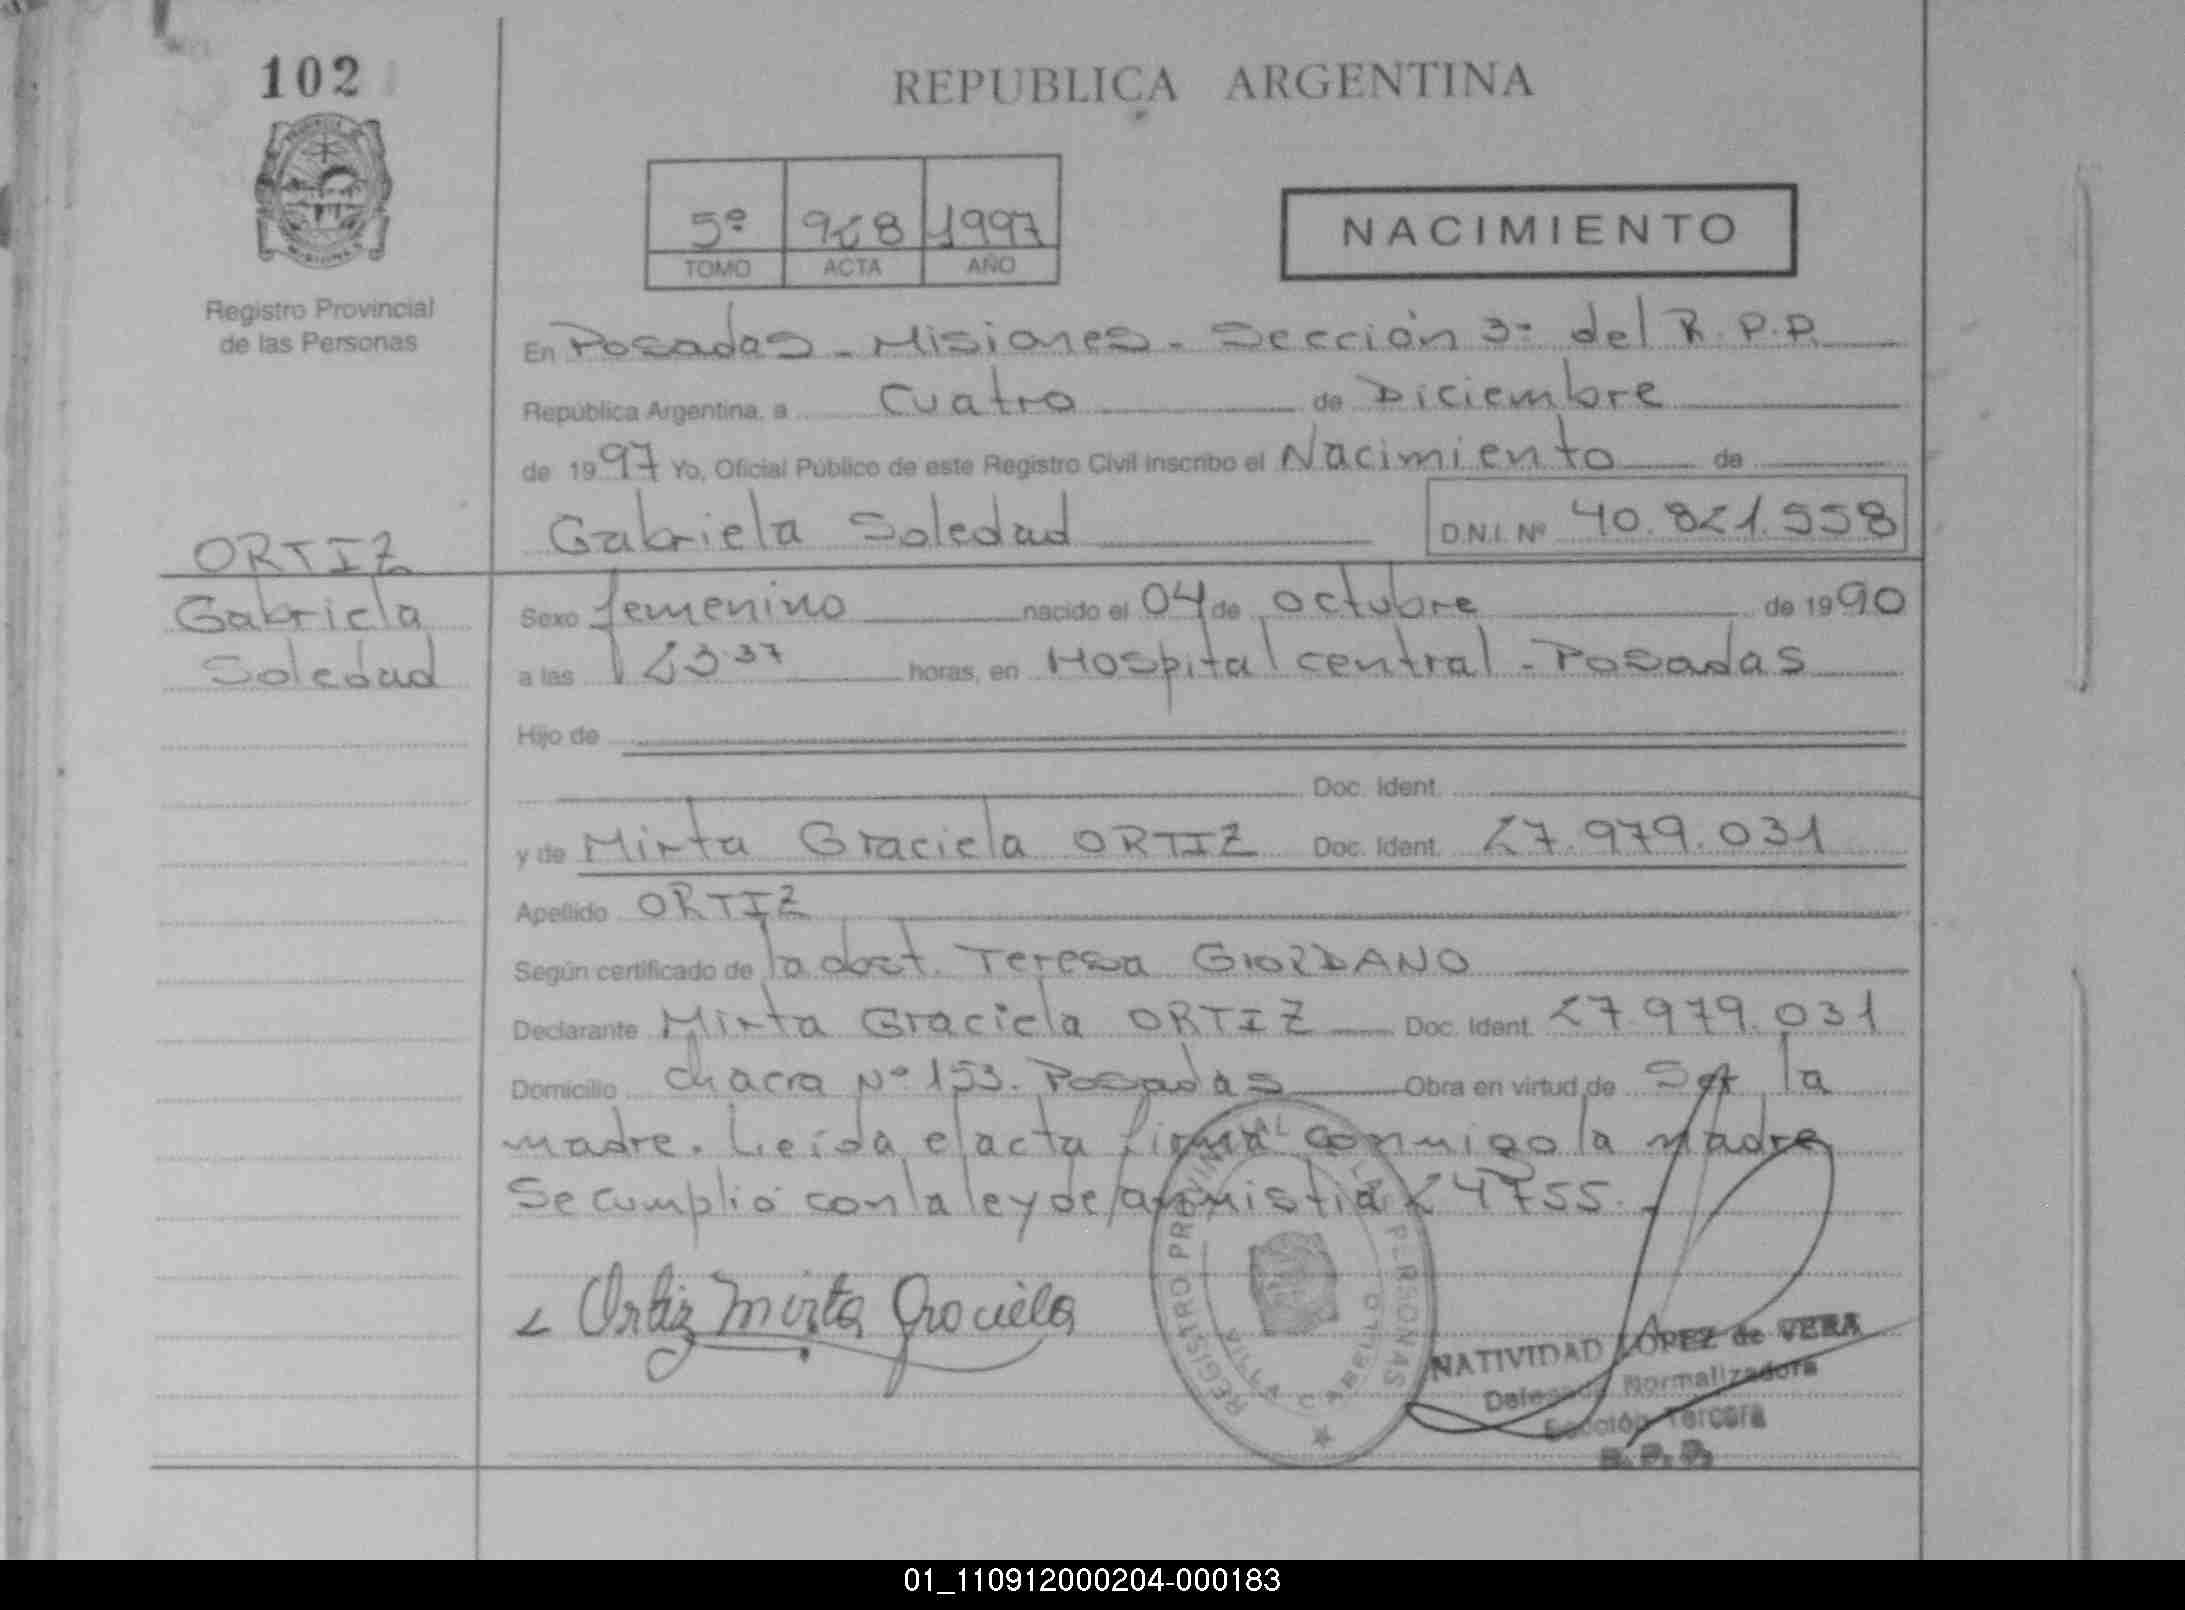 102
REPUBLICA ARGENTINA
5º 928 1997
TOMO ACTA AÑO
NACIMIENTO
Registro Provincial
de las Personas
En Posadas - Misiones - Sección 3º del R.P.P.
República Argentina, a Cuatro de Diciembre
de 1997 Yo, Oficial Público de este Registro Civil inscribo el Nacimiento de
Gabriela Soledad D.N.I. Nº 40.821.558
ORTIZ
Gabriela
Soledad
Sexo femenino nacido el 04 de octubre de 1990
a las 23.37 horas, en Hospital central - Posadas
Hijo de
Doc. Ident.
y de Mirta Graciela ORTIZ Doc. Ident. 27.979.031
Apellido ORTIZ
Según certificado de la obst. Teresa GIORDANO
Declarante Mirta Graciela ORTIZ Doc. Ident. 27.979.031
Domicilio chacra Nº 153. Posadas Obra en virtud de Ser la
madre. Leída el acta firma conmigo la madre
Se cumplió con la ley de amnistia 24755.-
Ortiz Mirta Graciela
REGISTRO PROVINCIAL PERSONAS
VILLA CABELLO
NATIVIDAD LOPEZ de VERA
Delegada Normalizadora
Sección Tercera
R.P.P.
01_110912000204-000183